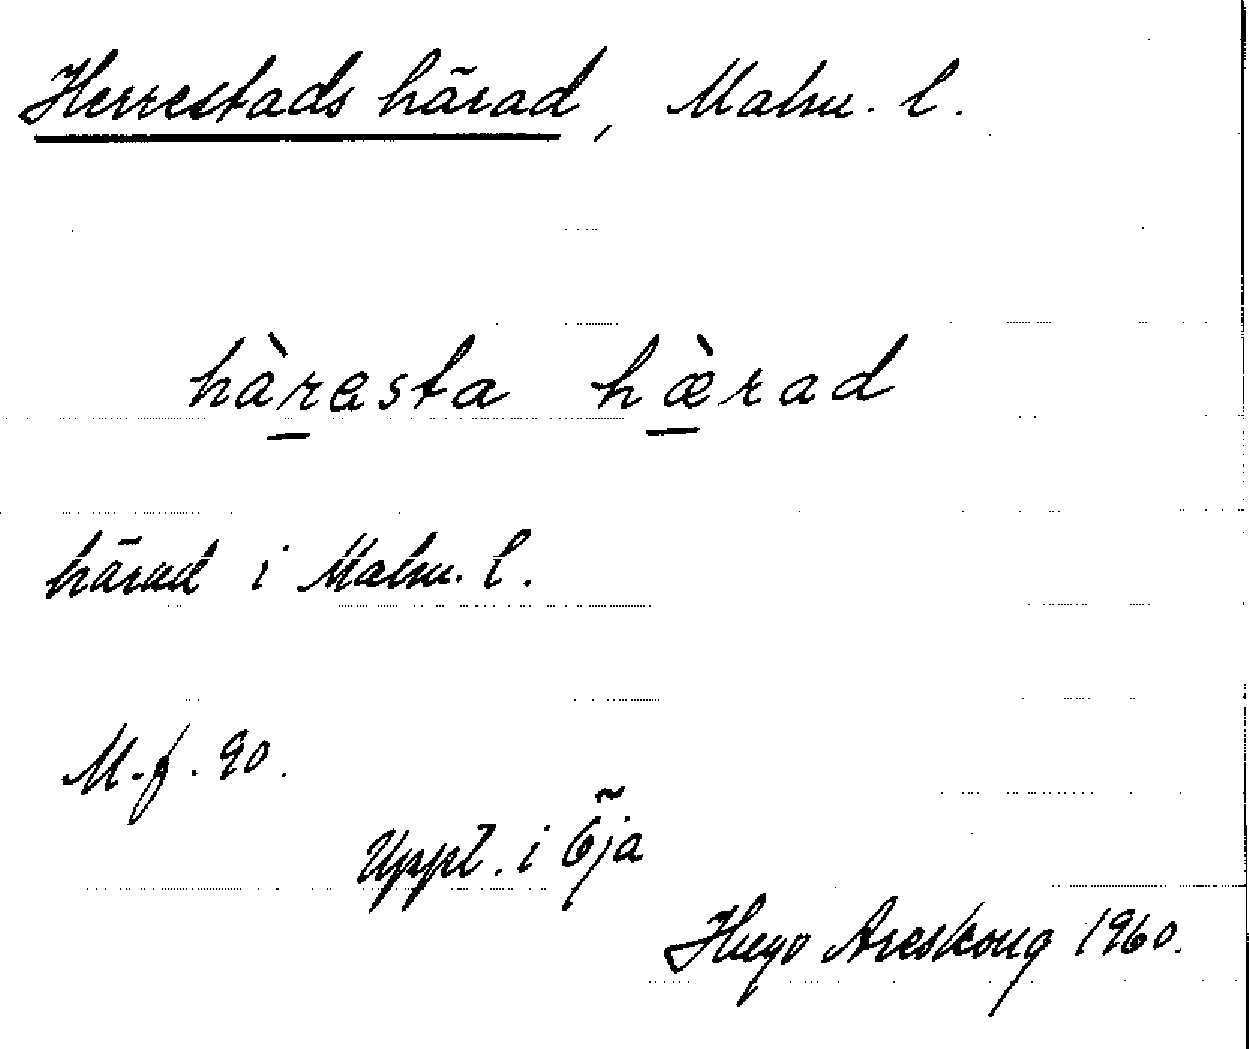 Herrestads härad, Malm. l.
hàrasta hæ̀rad
härad i Malm. l.
M. f. 90.
Uppt. i Öja
Hugo Areskoug 1960.